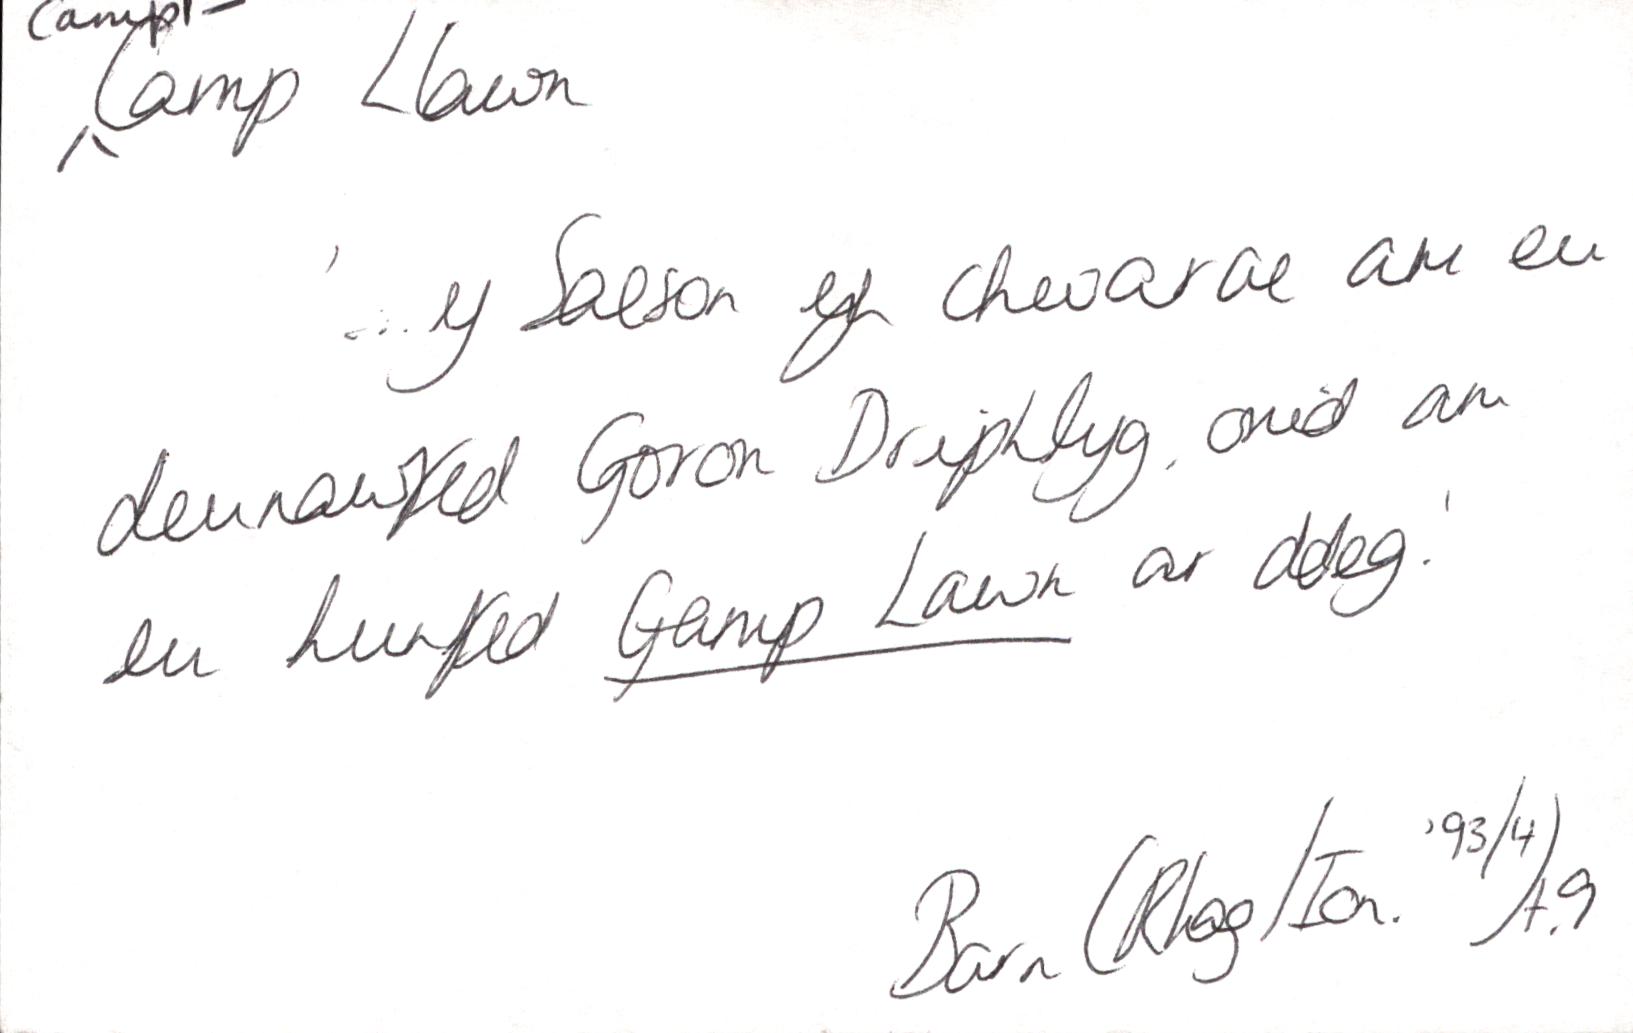 Camp1 -
Camp Llawn
'... y Saeson yn chwarae am eu
deunawfed Goron Driphlyg, ond am
eu hunfed Gamp Lawn ar ddeg.'
Barn (Rhag/Ion. '93/4) t.9